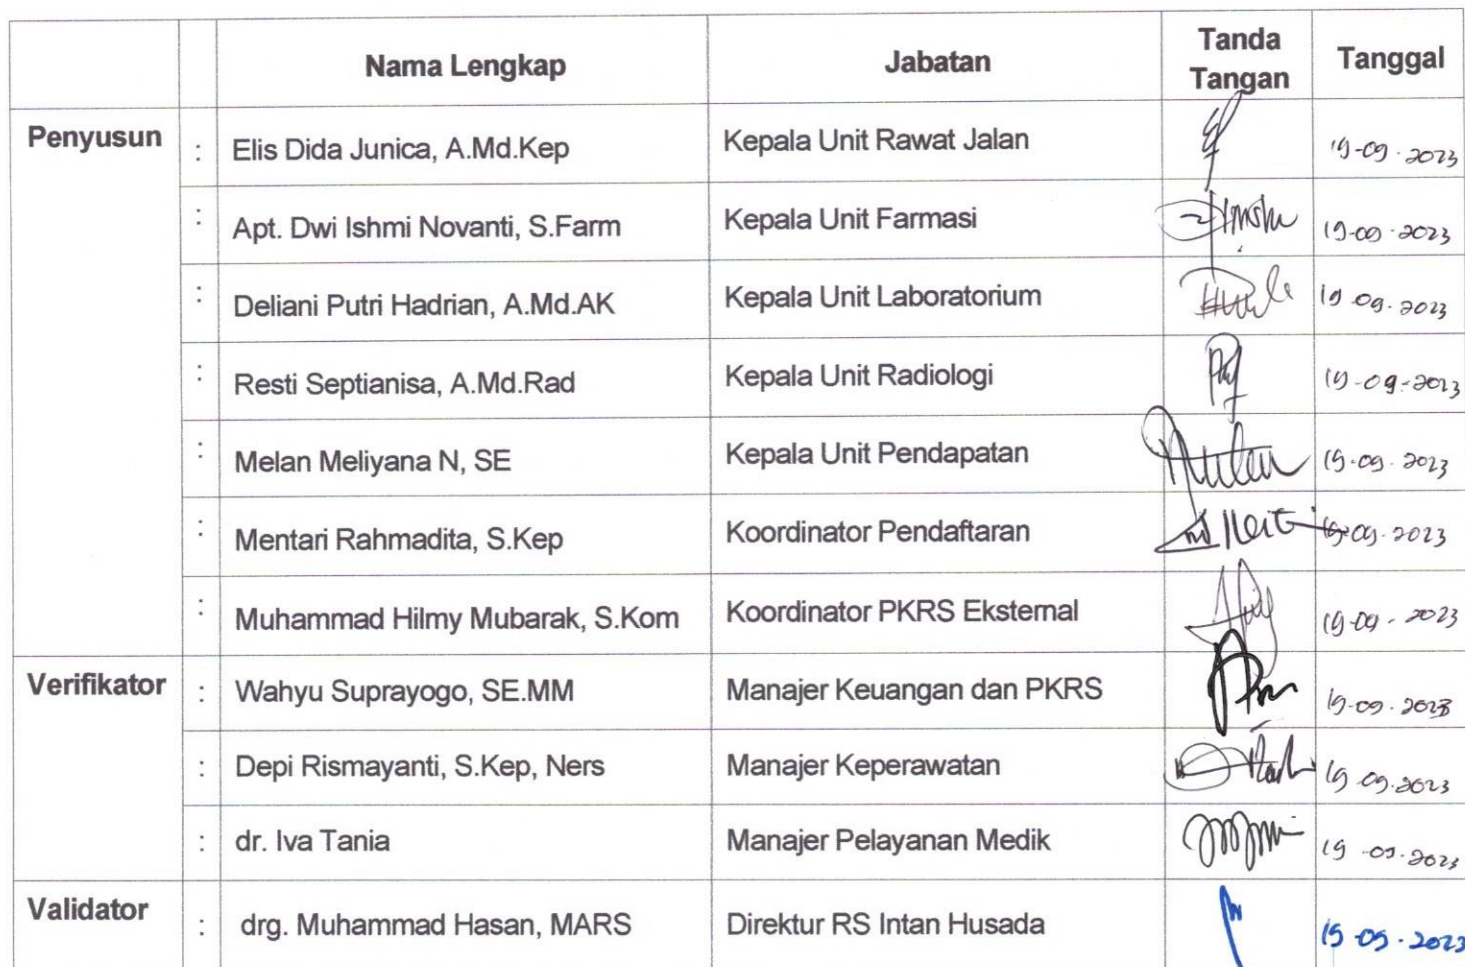 Nama Lengkap Jabatan Tanda Tangan Tanggal
Penyusun : Elis Dida Junica, A.Md.Kep Kepala Unit Rawat Jalan 19-09-2023
: Apt. Dwi Ishmi Novanti, S.Farm Kepala Unit Farmasi 19-09-2023
: Deliani Putri Hadrian, A.Md.AK Kepala Unit Laboratorium 19.09.2023
: Resti Septianisa, A.Md.Rad Kepala Unit Radiologi 19-09-2023
: Melan Meliyana N, SE Kepala Unit Pendapatan 19-09-2023
: Mentari Rahmadita, S.Kep Koordinator Pendaftaran 19-09-2023
: Muhammad Hilmy Mubarak, S.Kom Koordinator PKRS Eksternal 19-09-2023
Verifikator : Wahyu Suprayogo, SE.MM Manajer Keuangan dan PKRS 19-09-2023
: Depi Rismayanti, S.Kep, Ners Manajer Keperawatan 19-09-2023
: dr. Iva Tania Manajer Pelayanan Medik 19-09-2023
Validator : drg. Muhammad Hasan, MARS Direktur RS Intan Husada 19-09-2023